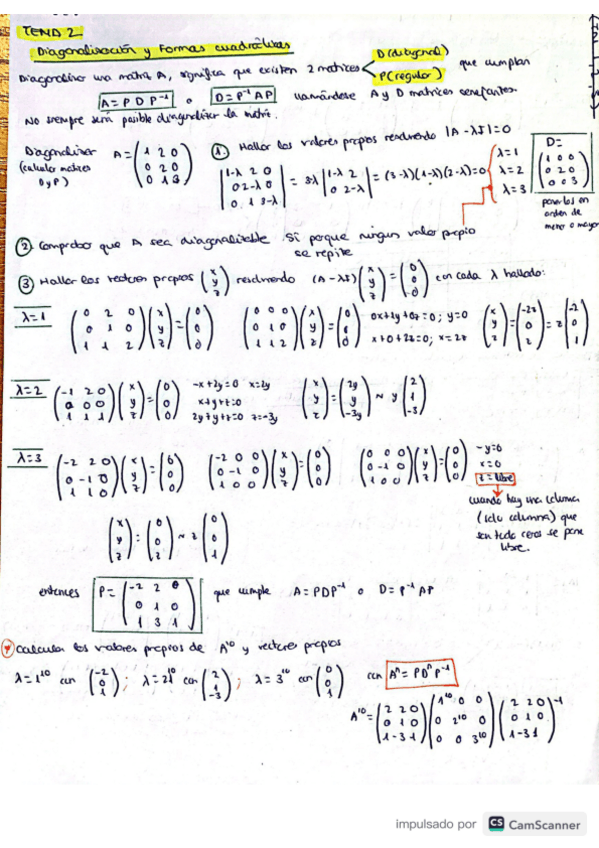 TEMA 2
Diagonalización y Formas cuadráticas
Diagonalizar una matriz A, significa que existen 2 matrices D(diagonal) P(regular) que cumplan
A = P D P⁻¹ o D = P⁻¹ A P llamándose A y D matrices semejantes.
No siempre será posible diagonalizar la matriz.
Diagonalizar (calcular matrices D y P) A = (1 2 0 / 0 2 0 / 0 1 3)
① Hallar los valores propios resolviendo |A - λI| = 0
|1-λ 2 0 / 0 2-λ 0 / 0 1 3-λ| = 3-λ |1-λ 2 / 0 2-λ| = (3-λ)(1-λ)(2-λ) = 0
λ = 1
λ = 2
λ = 3
D = (1 0 0 / 0 2 0 / 0 0 3)
ponerlos en orden de menor a mayor
② Comprobar que A sea diagonalizable Sí porque ningún valor propio se repite
③ Hallar los vectores propios (x / y / z) resolviendo (A - λI)(x / y / z) = (0 / 0 / 0) con cada λ hallado:
λ = 1 (0 2 0 / 0 1 0 / 1 1 2)(x / y / z) = (0 / 0 / 0) (0 0 0 / 0 1 0 / 1 1 2)(x / y / z) = (0 / 0 / 0) 0x+1y+0z=0; y=0 x+0+2z=0; x=2z (x / y / z) = (-2z / 0 / z) = z(-2 / 0 / 1)
λ = 2 (-1 2 0 / 0 0 0 / 1 1 1)(x / y / z) = (0 / 0 / 0) -x+2y=0 x=2y x+y+z=0 2y+y+z=0 z=-3y (x / y / z) = (2y / y / -3y) ~ y(2 / 1 / -3)
λ = 3 (-2 2 0 / 0 -1 0 / 1 1 0)(x / y / z) = (0 / 0 / 0) (-2 0 0 / 0 -1 0 / 1 0 0)(x / y / z) = (0 / 0 / 0) (0 0 0 / 0 -1 0 / 1 0 0)(x / y / z) = (0 / 0 / 0) -y=0 x=0 z=libre
cuando hay una columna
(solo columna) que
sea todo ceros se pone
libre.
(x / y / z) = (0 / 0 / z) ~ z(0 / 0 / 1)
entonces P = (-2 2 0 / 0 1 0 / 1 3 1) que cumple A = PDP⁻¹ o D = P⁻¹AP
④ Calcular los valores propios de A¹⁰ y vectores propios
λ = 1¹⁰ con (-2 / 0 / 1); λ = 2¹⁰ con (2 / 1 / -3); λ = 3¹⁰ con (0 / 0 / 1) con Aⁿ = PDⁿP⁻¹
A¹⁰ = (2 2 0 / 0 1 0 / 1 -3 1)(1¹⁰ 0 0 / 0 2¹⁰ 0 / 0 0 3¹⁰)(2 2 0 / 0 1 0 / 1 -3 1)⁻¹
impulsado por CS CamScanner